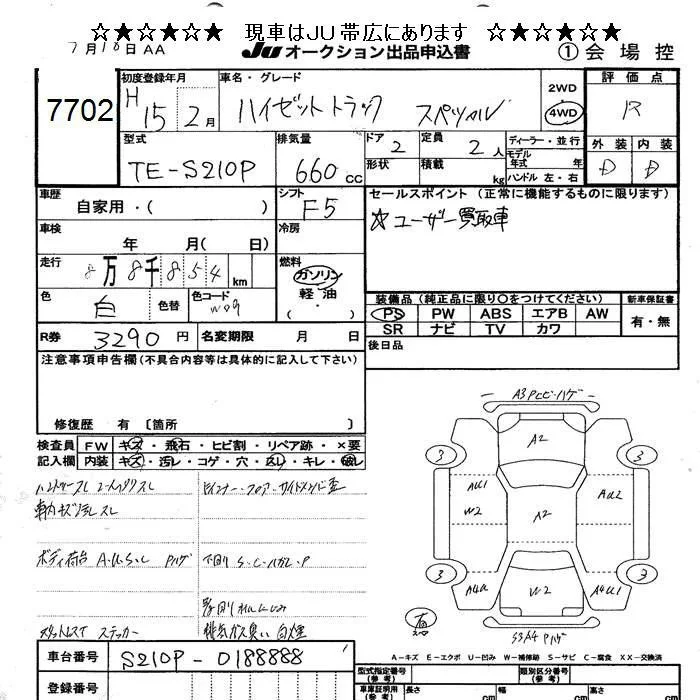 ☆★☆★☆★ 現車はJU帯広にあります ☆★☆★☆★
7月18日AA JU オークション出品申込書 ①会場控
7702
初度登録年月 H15 2月
車名・グレード ハイゼットトラック スペシャル
2WD
4WD
評価点 R
外装 内装
D D
型式 TE-S210P
排気量 660cc
ドア 2
形状
定員 2人
積載 kg
ディーラー・並行
モデル年式 年
ハンドル 左・右
車歴 自家用・( )
シフト F5
セールスポイント(正常に機能するものに限ります)
☆ユーザー買取車
車検 年 月( 日)
冷房
走行 8万8千854km
燃料 ガソリン
軽油
色 白 色替 色コード W09
装備品(純正品に限り○をつけてください) 新車保証書
PS PW ABS エアB AW 有・無
SR ナビ TV カワ
R券 3290円 名変期限 月 日
後日品
注意事項申告欄(不具合内容等は具体的に記入して下さい)
修復歴 有〔箇所 〕
検査員 FW キズ・飛石・ヒビ割・リペア跡・×要
記入欄 内装 キズ・汚レ・コゲ・穴・スレ・キレ・破レ
車内キズ汚レスレ
ボディ荷台 A.U.S.C Pハゲ
下回り S.C.ハガレ.P
排気ガス臭い 白煙
ステッカー
A2
3 3
AU1 AU2
W2 A2
3 3
A4U AU1
W2
有
A-キズ E-エクボ U-凹み W-補修跡 S-サビ C-腐食 XX-交換済
車台番号 S210P-0188888
登録番号
型式指定番号(参考) 類別区分番号(参考)
車庫証明用(参考) 長さ cm 幅 cm 高さ cm